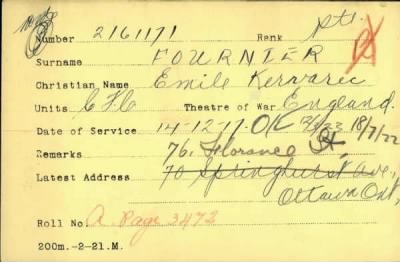 Number 2161171 Rank pte.
Surname FOURNIER
Christian Name Emile Kervarec
Units C F C Theatre of War England.
Date of Service 14-12-17. OK 18/7/22
Remarks 76, Florance St,
Latest Address 70 Springhurst Ave.,
Ottawa Ont,
Roll No. A. Page 3472
200m.-2-21.M.